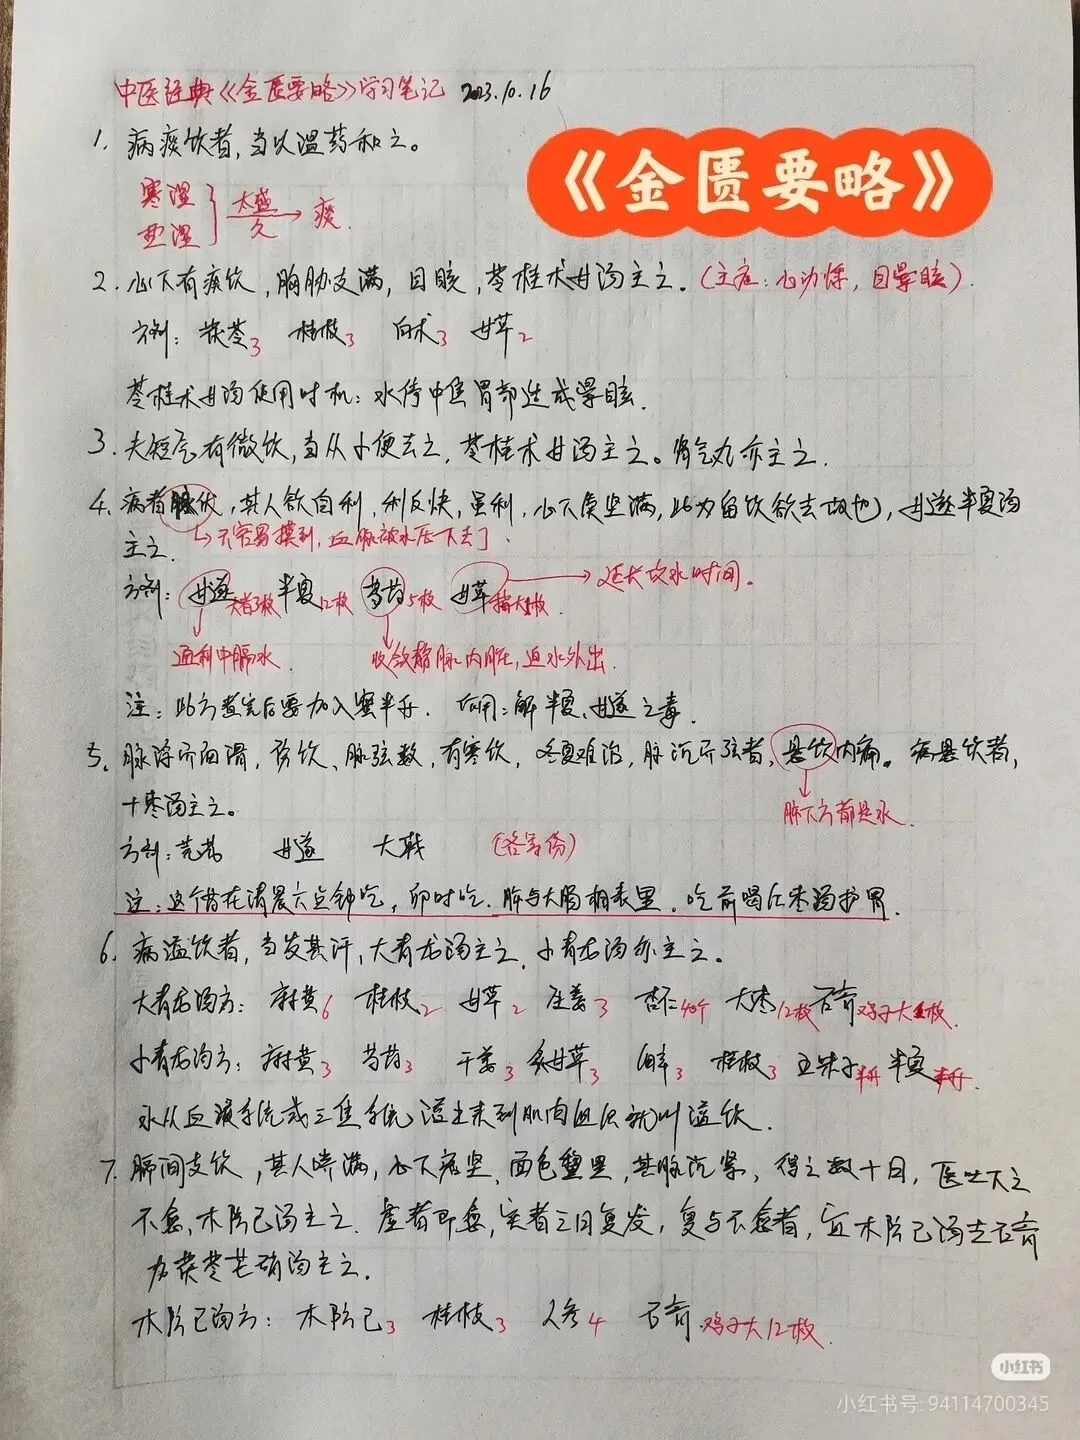 中医经典《金匮要略》学习笔记 2023.10.16
《金匮要略》
1. 病痰饮者,当以温药和之。
寒湿
热湿
太盛
久
痰
2. 心下有痰饮,胸胁支满,目眩,苓桂术甘汤主之。(主症:心动悸,目晕眩)
方剂:茯苓3 桂枝3 白术3 甘草2
苓桂术甘汤使用时机:水停中焦胃部造成晕眩.
3. 夫短气有微饮,当从小便去之,苓桂术甘汤主之。肾气丸亦主之.
4. 病者脉伏,其人欲自利,利反快,虽利,心下续坚满,此为留饮欲去故也,甘遂半夏汤
↳不容易摸到,血脉被水压下去了.
主之.
方剂:甘遂大者3枚 半夏12枚 芍药5枚 甘草指大1枚. →延长攻水时间。
通利中膈水. 收敛静脉内脏,迫水外出.
注:此方煮完后要加入蜜半升. 作用:解半夏、甘遂之毒.
5. 脉浮而细滑,伤饮、脉弦数,有寒饮,冬夏难治,脉沉而弦者,悬饮内痛。病悬饮者,
十枣汤主之。
肺下方都是水.
方剂:芫花 甘遂 大戟 (各等份)
注:这个药在清晨六点钟吃,卯时吃.肺与大肠相表里.吃前喝红枣汤护胃.
6. 病溢饮者,当发其汗,大青龙汤主之,小青龙汤亦主之。
大青龙汤方:麻黄6 桂枝2 甘草2 生姜3 杏仁40个 大枣12枚 石膏鸡子大1枚.
小青龙汤方:麻黄3 芍药3 干姜3 炙甘草3 细辛3 桂枝3 五味子半升 半夏半升.
水从血液系统或三焦系统溢出来到肌肉组织就叫溢饮.
7. 膈间支饮,其人喘满,心下痞坚,面色黧黑,其脉沉紧,得之数十日,医吐下之
不愈,木防己汤主之.虚者即愈,实者三日复发,复与不愈者,宜木防己汤去石膏
加茯苓芒硝汤主之.
木防己汤方:木防己3 桂枝3 人参4 石膏.鸡子大12枚.
小红书
小红书号:94114700345